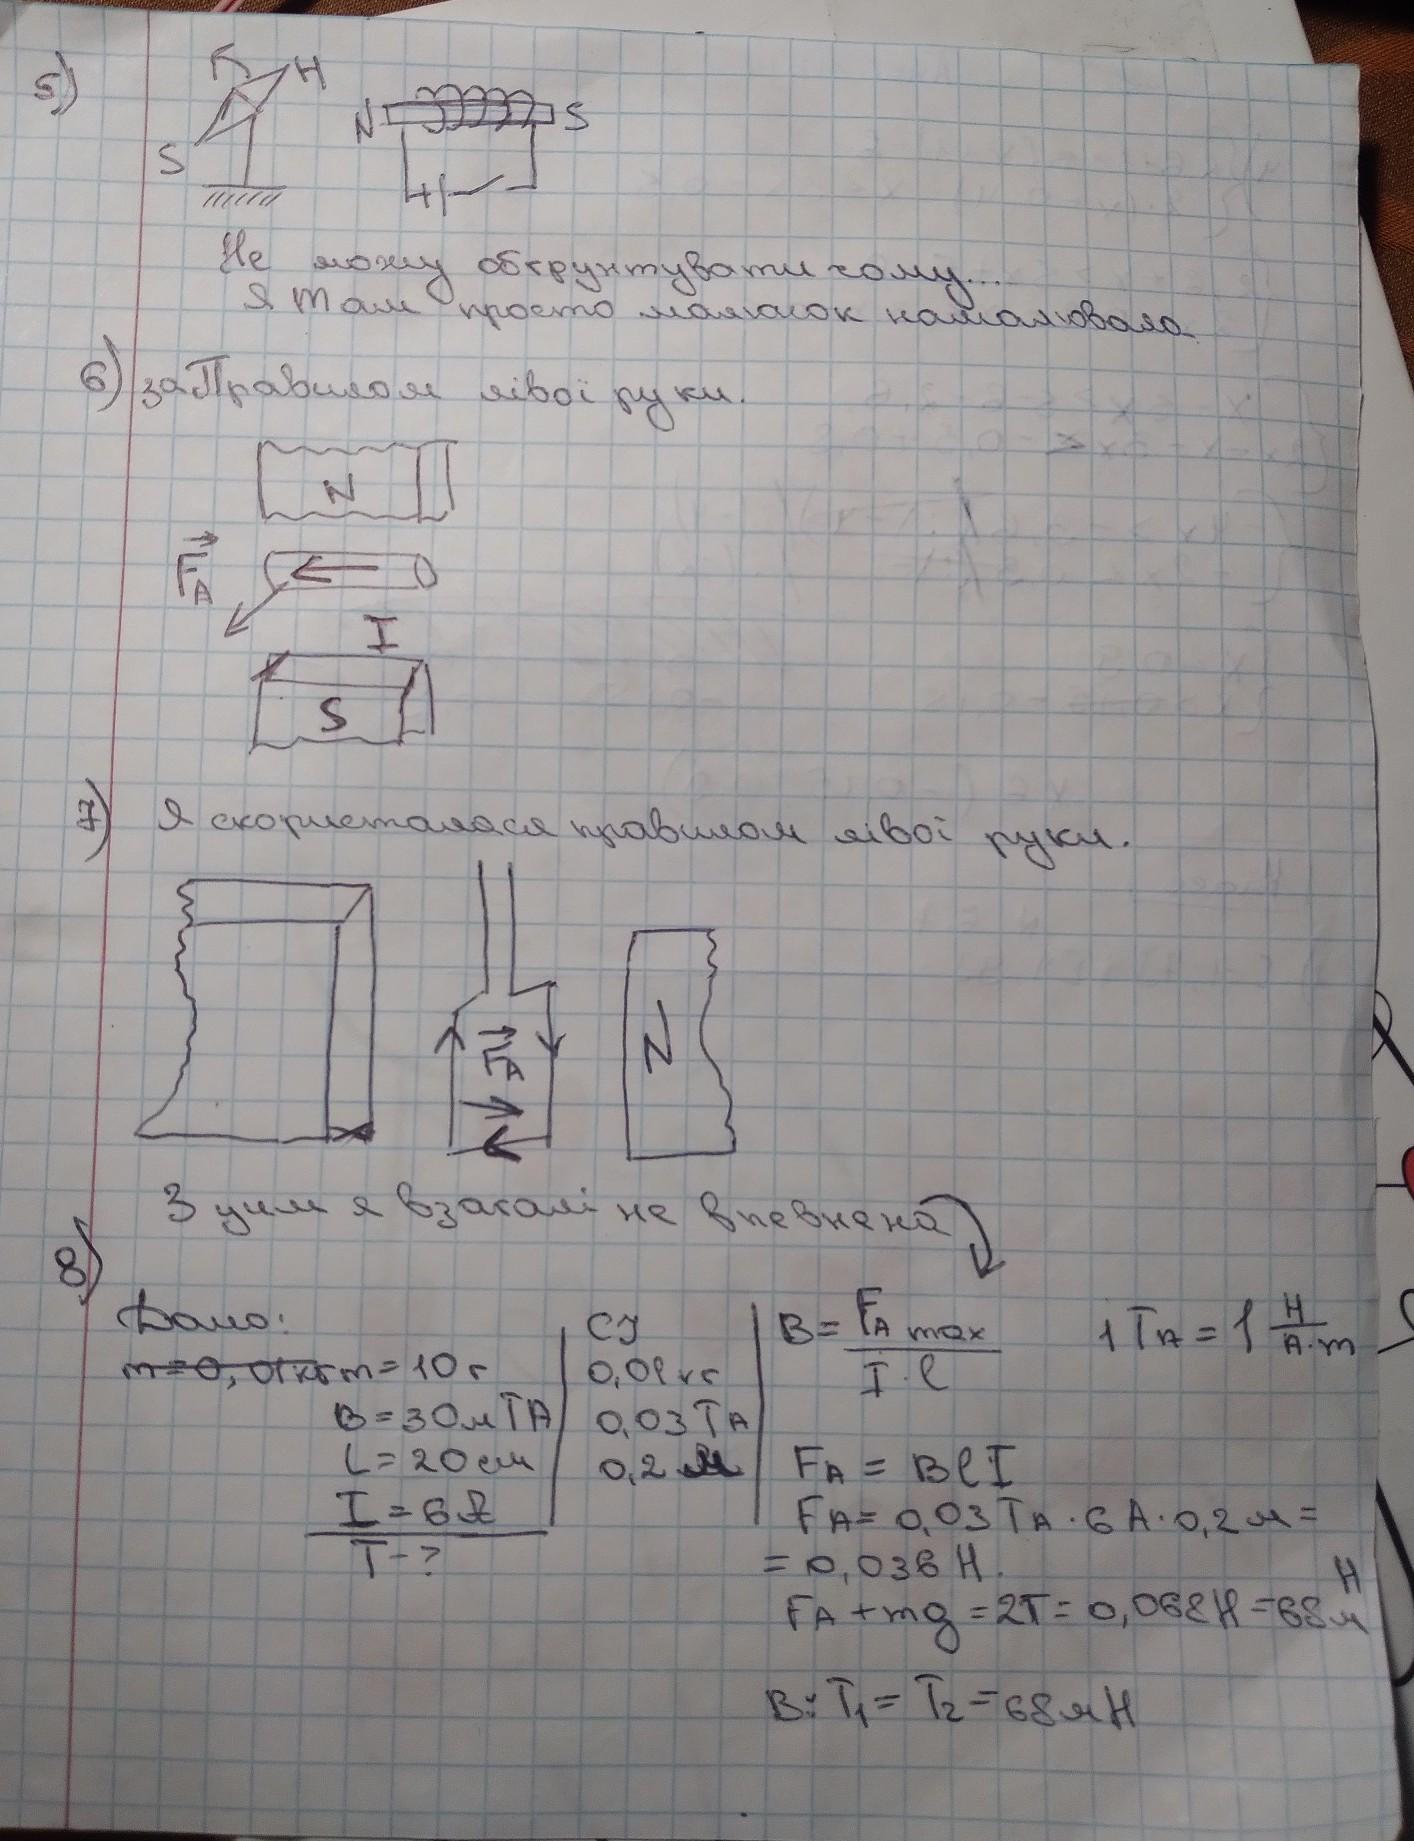 5)
H
S
N S
+
Не можу обґрунтувати чому...
Я там просто малюнок намалювала
6) за Правилом лівої руки.
N
F⃗A
I
S
7) Я скористалася правилом лівої руки.
F⃗A
N
З цим я взагалі не впевнена
8)
Дано:
m=0,01кг m=10г
B=30мТл
l=20см
I=6A
T-?
СІ
0,01кг
0,03Тл
0,2 м
B= FA max / I·l
1Тл = 1 Н/А·м
FA = BlI
FA= 0,03Тл·6A·0,2м=
=0,036 H.
FA+mg=2T=0,068H=68мН
В: T1=T2=68мН